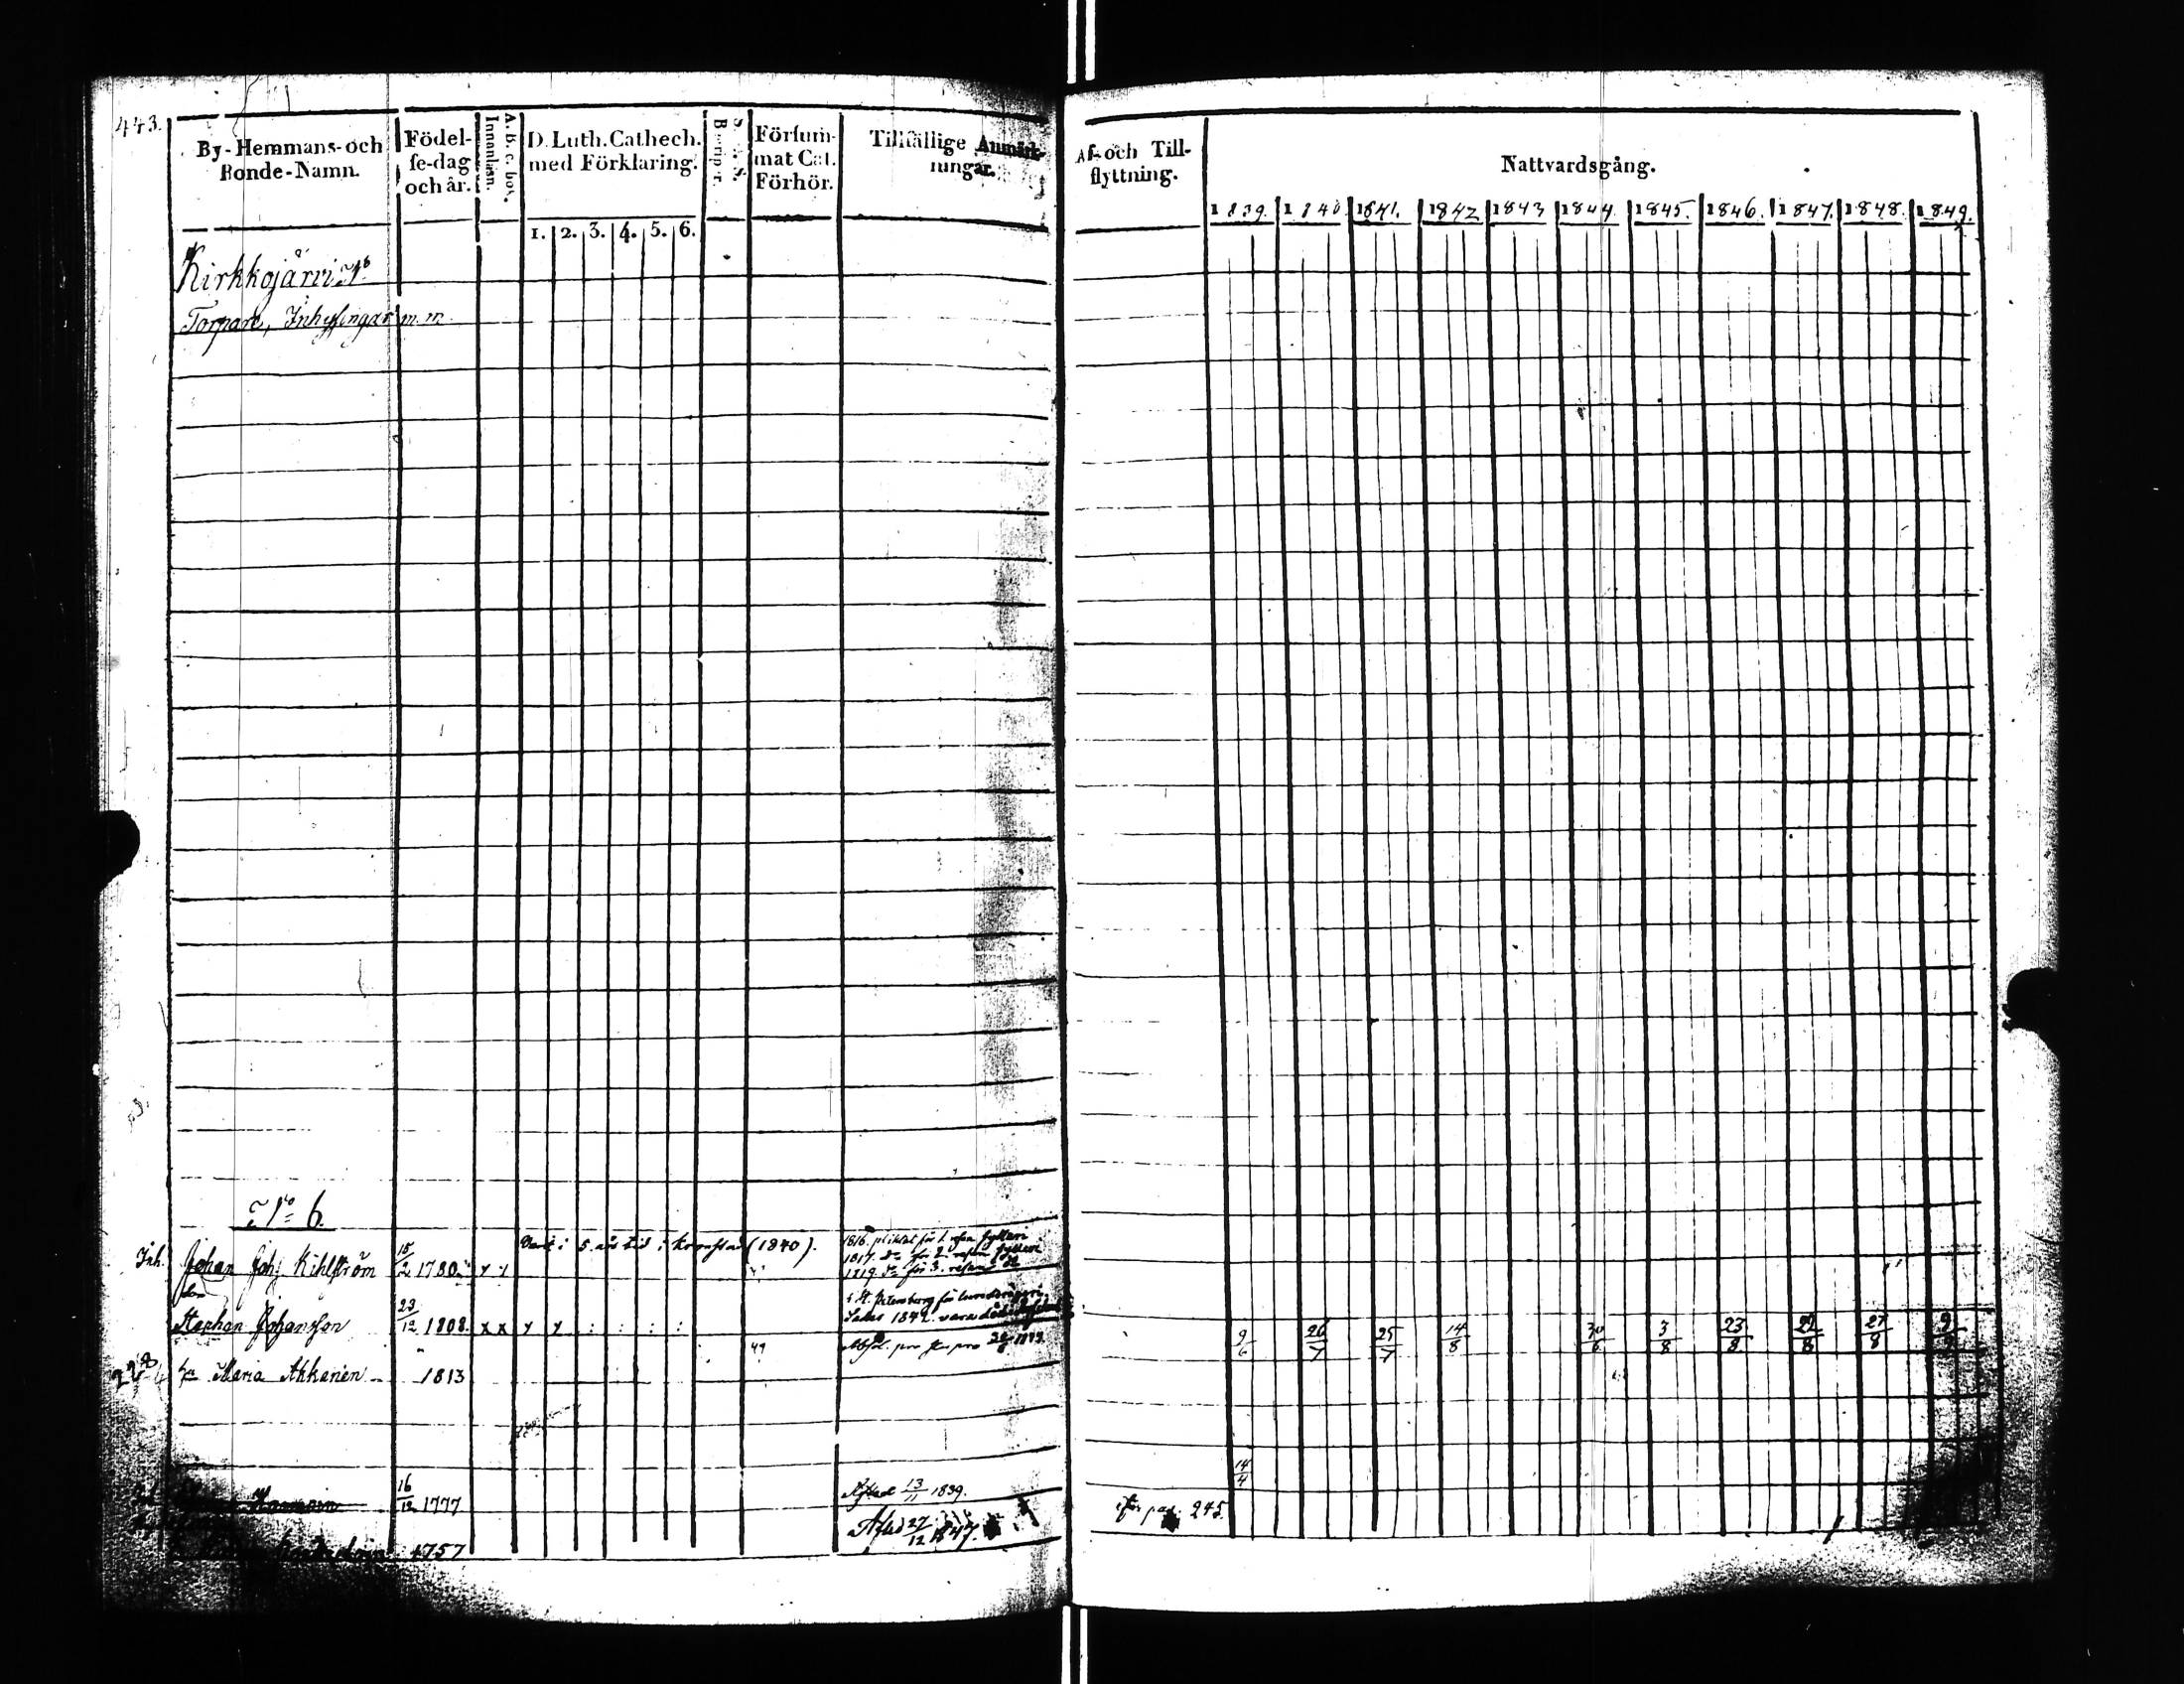 443.
By-Hemmans-och Bonde-Namn.
Födel-se-dag och år.
A. B. c. bok. Innanläsn.
D. Luth. Cathech. med Förklaring.
1. 2. 3. 4. 5. 6.
Försum-mat Cat. Förhör.
Tillfällige Anmärk-ningar.
Af- och Till-flyttning.
Nattvardsgång.
1839. 1840 1841. 1842 1843 1844 1845. 1846. 1847. 1848. 1849.
Kirkkojärvi No
Torpare, Inhysingar m. m.
No 6.
Inh. Johan Joh: Kihlström 15/2 1780. x x
5 års tid i (1840).
1816. pliktat för 1. resan fylleri
1817. do för 2. resan fylleri
1819. do för 3. resan do
Son
Stephan Johansson 23/12 1808. x x y y : : : :
i St. Petersburg för
1842. vara
49
pro 1849.
9/6 26/7 25/7 14/8 30/6 3/8 23/8 22/8 27/8 9/9
h. Maria Akkanen 1813
14/4
16/12 1777
Afled 13/11 1839.
1757
Afled 27/12 1847.
pag. 245.